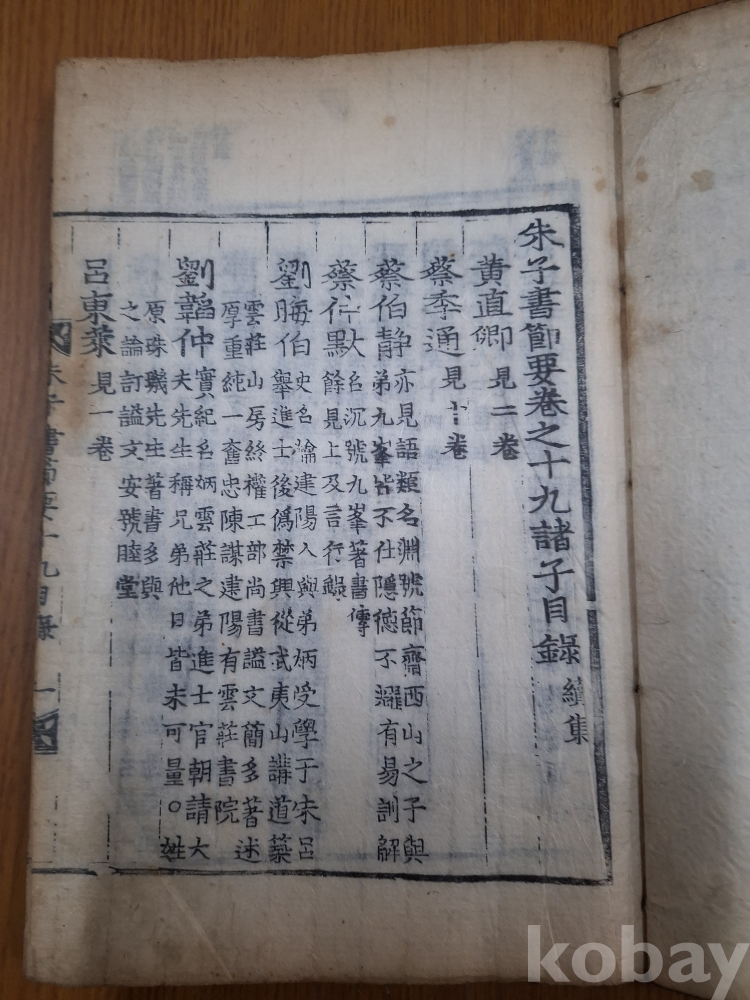 朱子書節要卷之十九諸子目錄 續集
黃直卿 見二卷
蔡季通 見十卷
蔡伯靜 亦見語類名淵號節齋西山之子與
弟九峯皆不仕隱德不耀有易訓解
蔡仲默 名沉號九峯著書傳
餘見上及言行錄
劉晦伯 史名瀹建陽人與弟炳受學于朱呂
舉進士後僞禁興從武夷山講道築
雲莊山房終權工部尚書謚文簡多著述
厚重純一奮忠陳謀建陽有雲莊書院
劉韜仲 實紀名炳雲莊之弟進士官朝請大
夫先生稱兄弟他日皆未可量○姓
原珠璣先生著書多與
之論訂謚文安號睦堂
呂東萊 見一卷
朱子書節要十九目錄 一
kobay